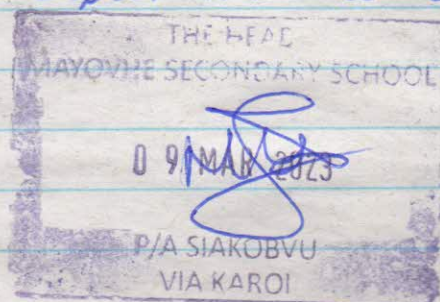 THE HEAD
MAYOVHE SECONDARY SCHOOL
09 MAR 2023
P/A SIAKOBVU
VIA KAROI